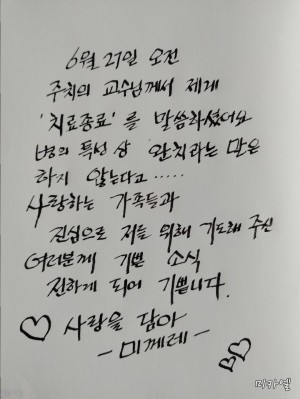 6월 27일 오전
주치의 교수님께서 제게
'치료종료'를 말씀하셨어요
병의 특성 상 완치라는 말은
하지 않는다고.....
사랑하는 가족들과
진심으로 저를 위해 기도해 주신
여러분께 기쁜 소식
전하게 되어 기쁩니다.
♡ 사랑을 담아
- 미께레 -
미카엘